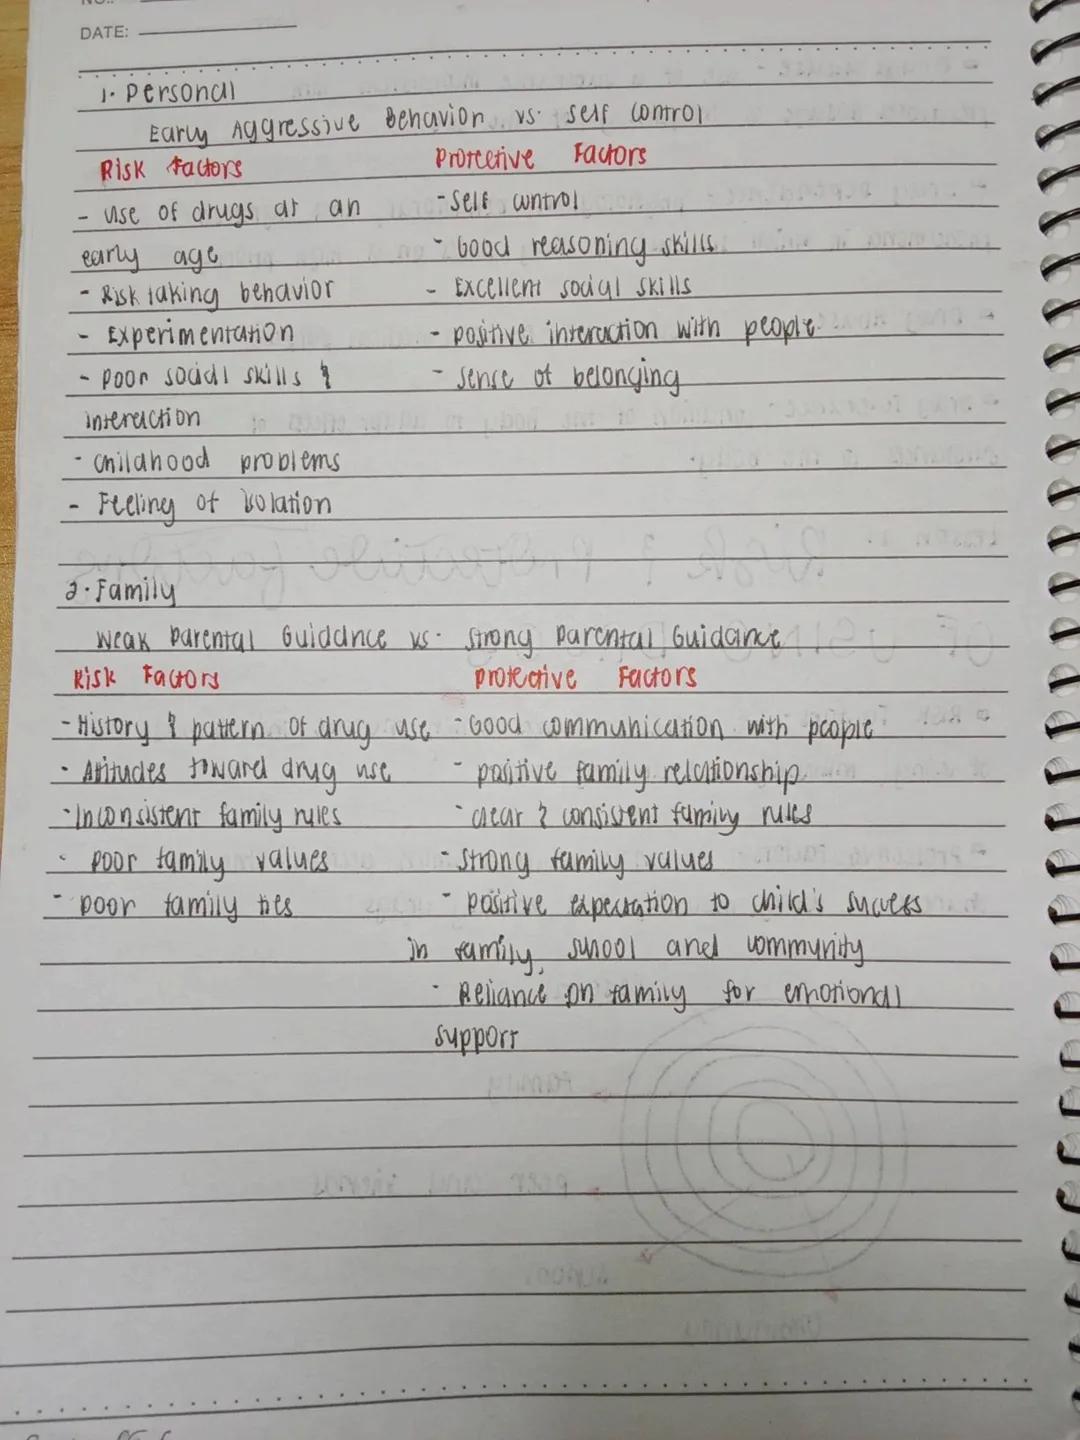 DATE:
1. Personal
Early Aggressive Behavior vs. Self control
Risk Factors Protective Factors
- Use of drugs at an - Self control
early age - Good reasoning skills
- Risk taking behavior - Excellent social skills
- Experimentation - positive interaction with people
- poor social skills & - sense of belonging
interaction
- childhood problems
- Feeling of isolation
2. Family
Weak parental Guidance vs. Strong parental Guidance
Risk Factors Protective Factors
- History & pattern of drug use - Good communication with people
- Attitudes toward drug use - positive family relationship
- Inconsistent family rules - clear & consistent family rules
- poor family values - strong family values
- poor family ties - positive expectation to child's success
in family, school and community
- Reliance on family for emotional
support